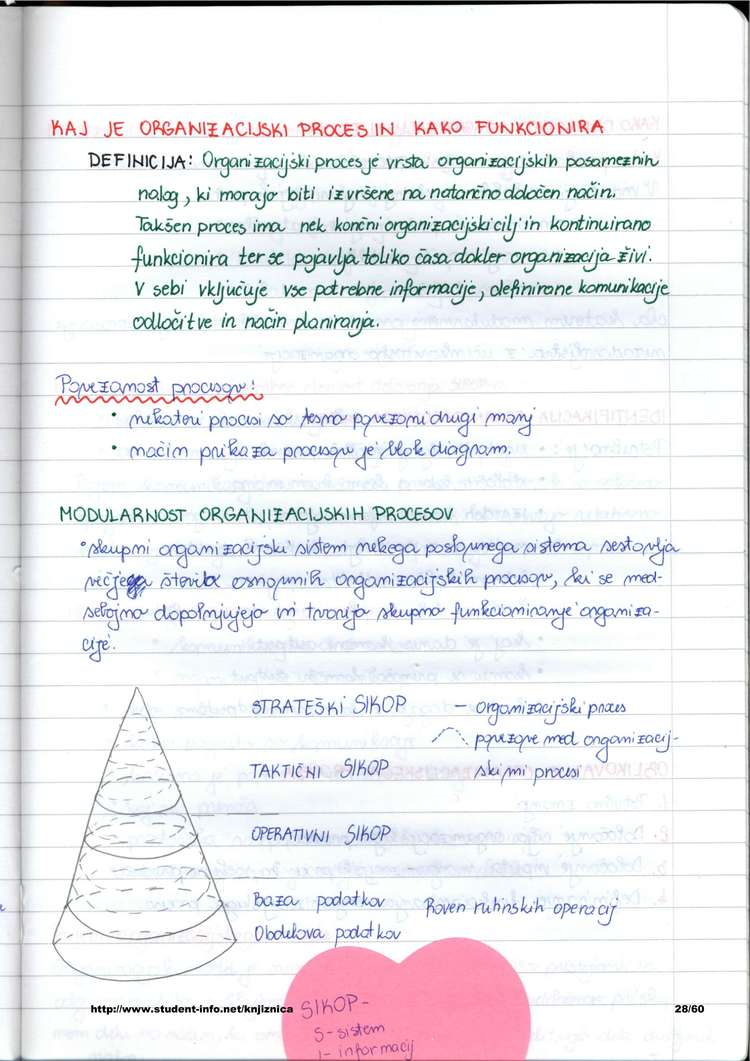 KAJ JE ORGANIZACIJSKI PROCES IN KAKO FUNKCIONIRA
DEFINICIJA: Organizacijski proces je vrsta organizacijskih posameznih
nalog, ki morajo biti izvršene na natančno določen način.
Takšen proces ima nek končni organizacijski cilj in kontinuirano
funkcionira ter se pojavlja toliko časa dokler organizacija živi.
V sebi vključuje vse potrebne informacije, definirane komunikacije
odločitve in način planiranja.
Povezanost procesov:
• nekateri procesi so tesno povezani drugi manj
• način prikaza procesov je blok diagram.
MODULARNOST ORGANIZACIJSKIH PROCESOV
• skupni organizacijski sistem nekega poslovnega sistema sestavlja
večje število osnovnih organizacijskih procesov, ki se med-
sebojno dopolnjujejo in tvorijo skupno funkcioniranje organiza-
cije.
STRATEŠKI SIKOP — organizacijski proces
povezave med organizacij-
TAKTIČNI SIKOP skimi procesi
OPERATIVNI SIKOP
Baza podatkov Roven rutinskih operacij
Obdelava podatkov
http://www.student-info.net/knjiznica 28/60
SIKOP-
S-sistem
I-informacij